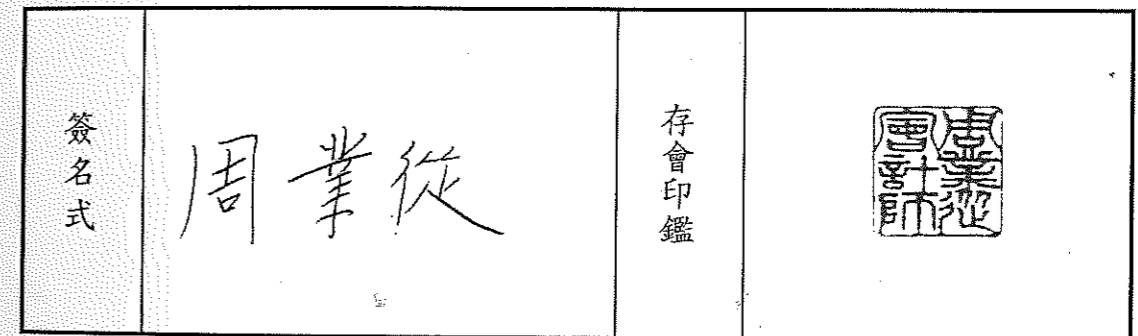 簽名式
周業從
存會印鑑
周業從
會計師